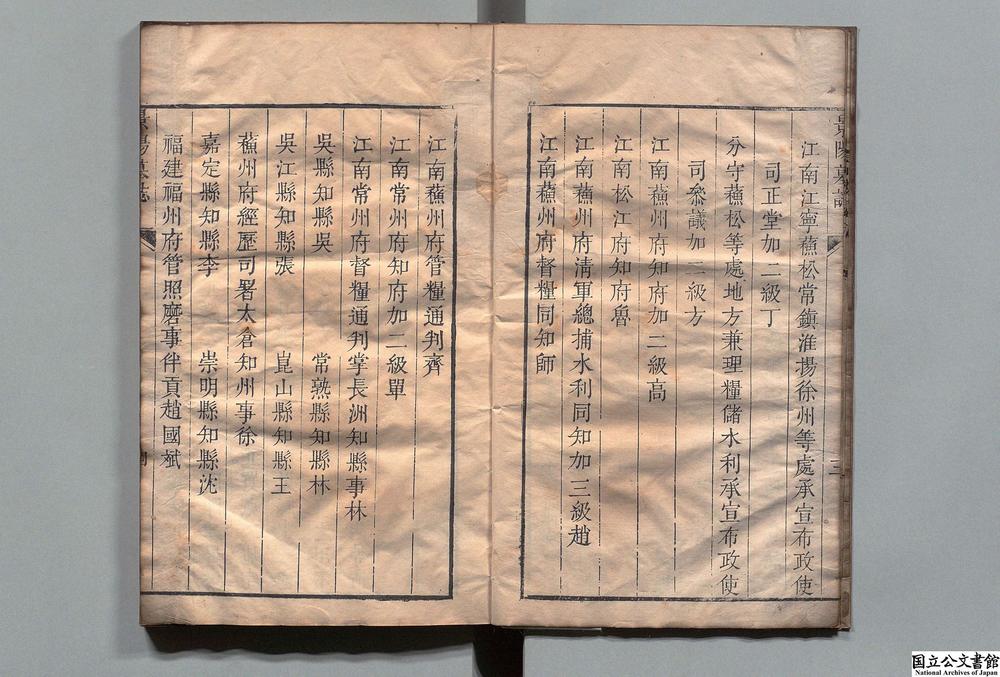 江南江寧蘇松常鎮淮揚徐州等處承宣布政使
司正堂加二級丁
分守蘇松等處地方兼理糧儲水利承宣布政使
司參議加二級方
江南蘇州府知府加二級高
江南松江府知府魯
江南蘇州府清軍總捕水利同知加三級趙
江南蘇州府督糧同知師
三
江南蘇州府管糧通判齊
江南常州府知府加二級單
江南常州府督糧通判掌長洲知縣事林
吳縣知縣吳 常熟縣知縣林
吳江縣知縣張 崑山縣知縣王
蘇州府經歷司署太倉知州事徐
嘉定縣知縣李 崇明縣知縣沈
福建福州府管照磨事件貢趙國斌
国立公文書館
National Archives of Japan